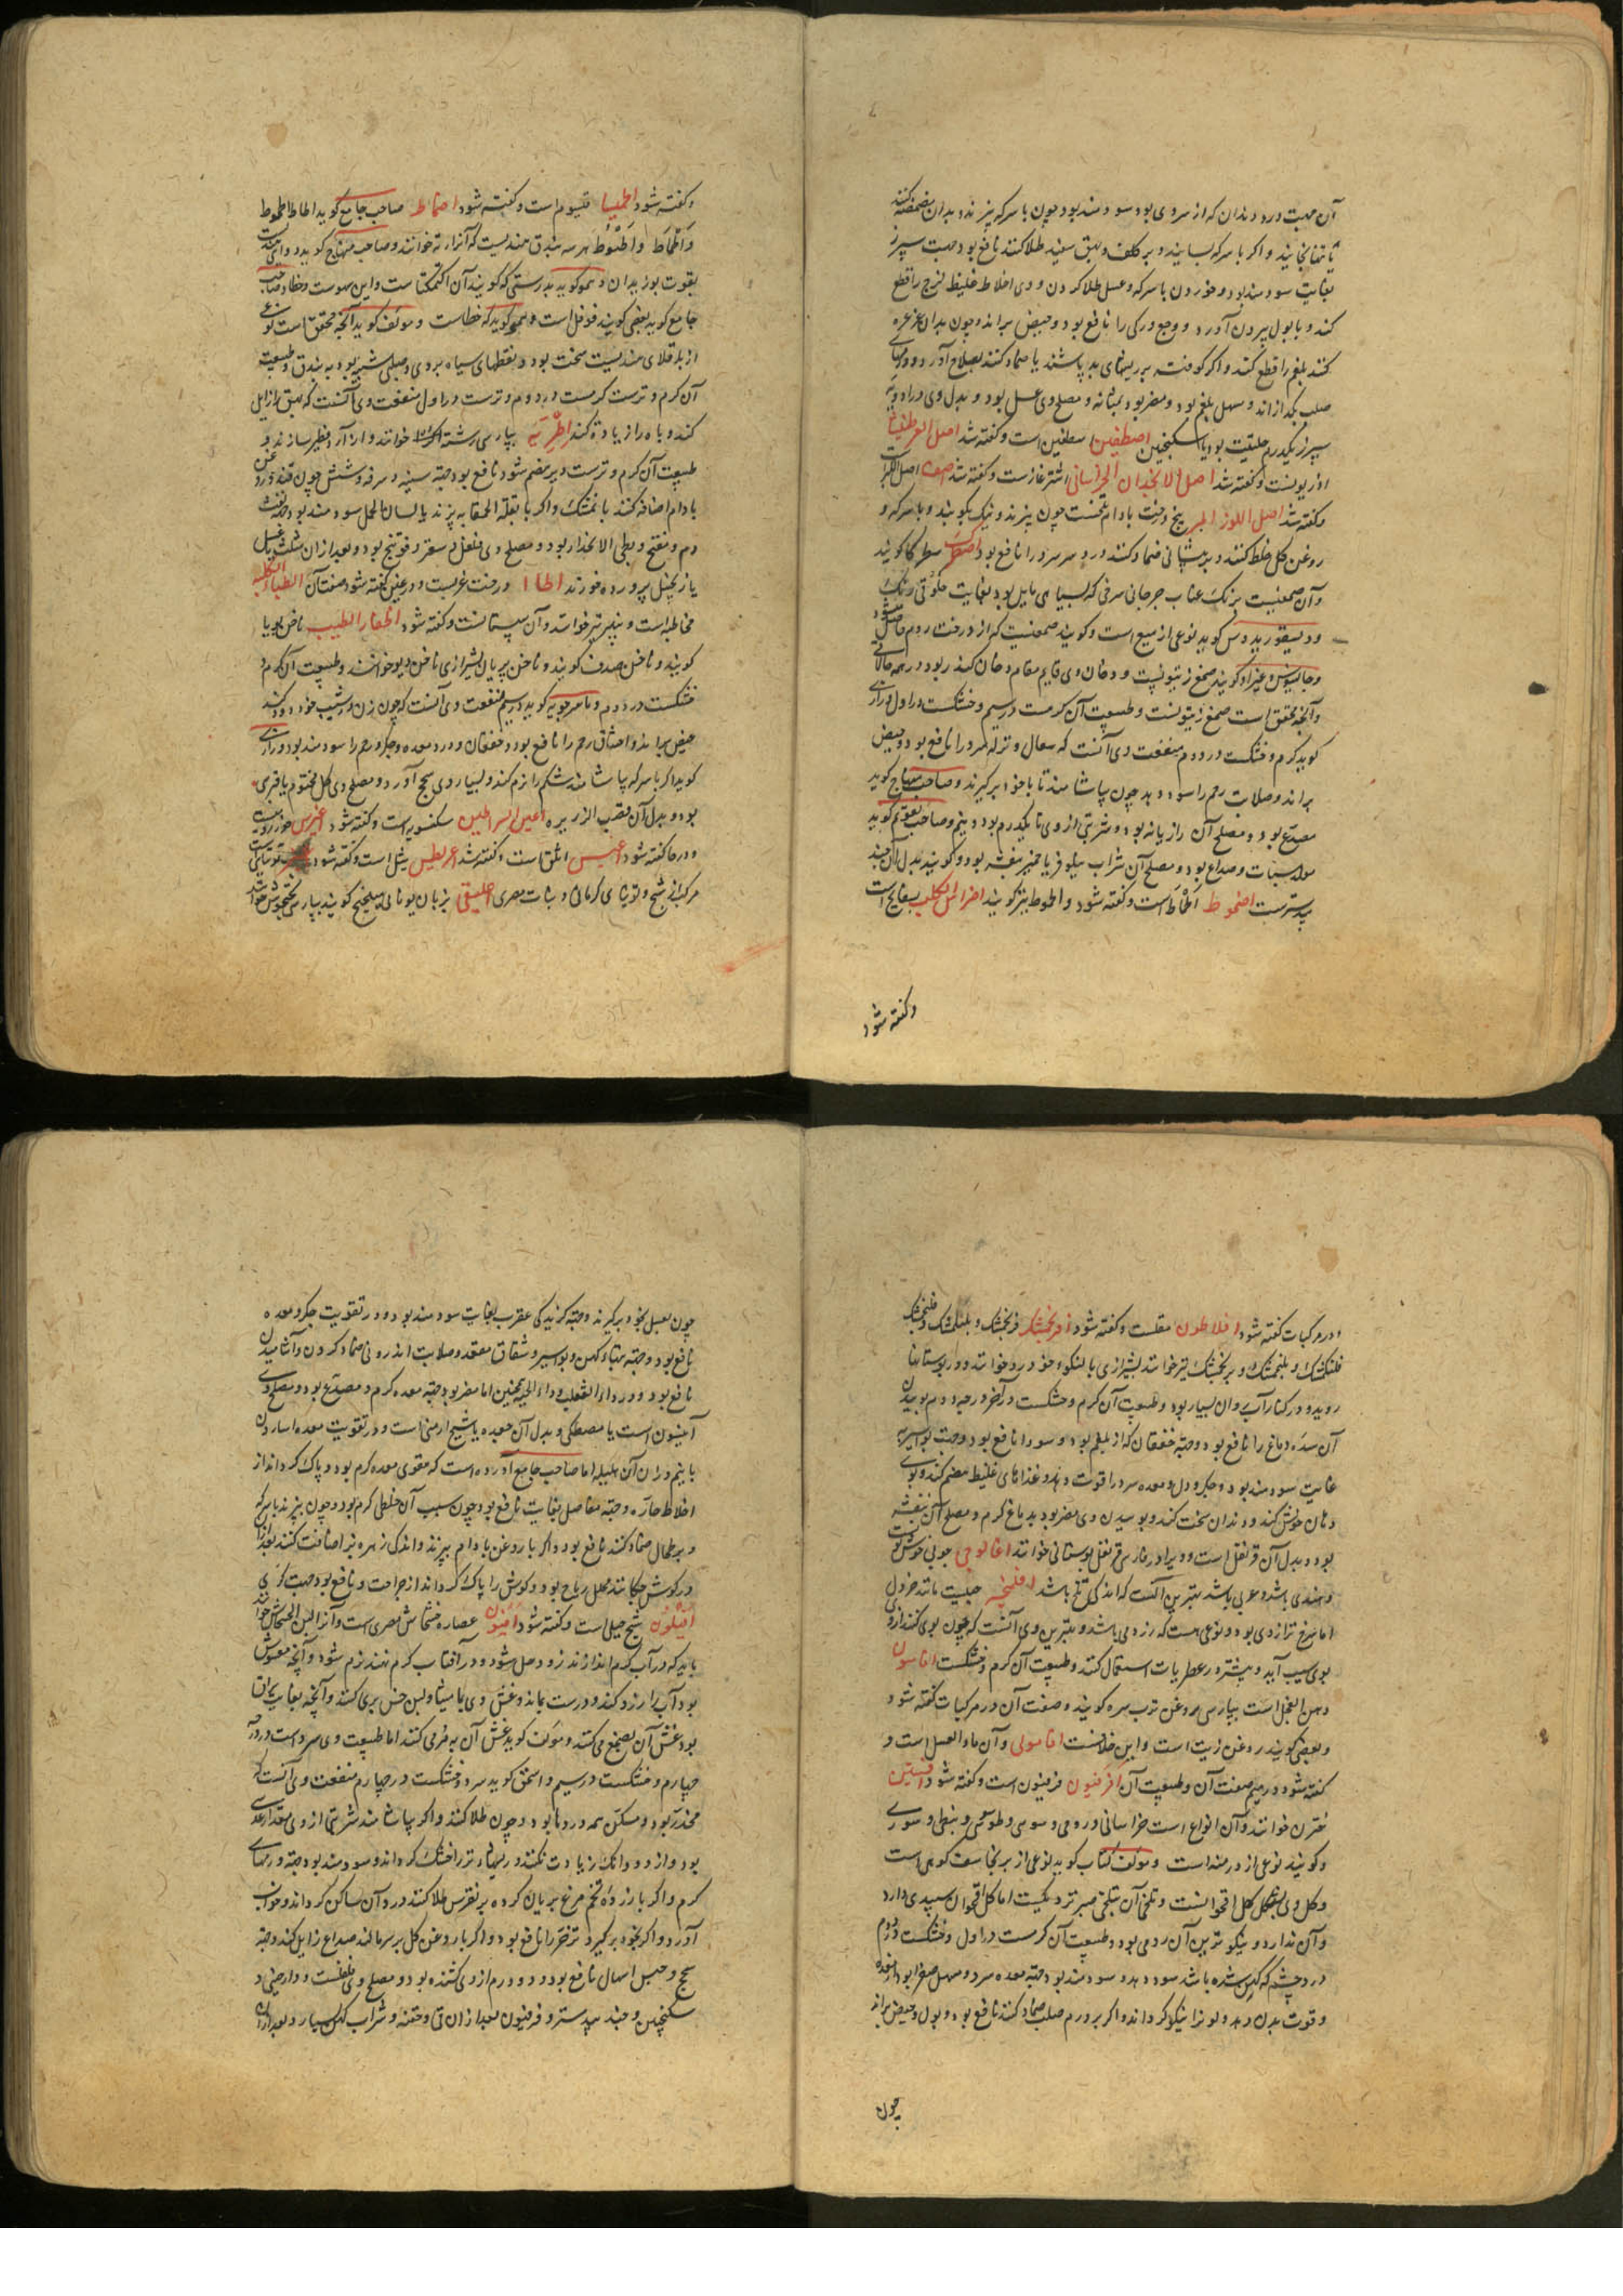 آن جهت درد دندان که از سردی بود سودمند بود چون با سرکه بپزند و بدان مضمضه کنند
و اکر با سرکه بسایند و بر کلف و بهق سفید طلا کنند نافع بود جهت سپرز
بغایت سودمند بود و خوردن با سرکه و عسل طلا کردن و وی اخلاط غلیظ لزج را قطع
کند و با بول بیرون آورد و وجع ورکی را نافع بود و حیض براند و چون بدان غرغره
کنند بلغم را قطع کند و اکر کوفته بر ریشهای بد پاشند یا ضماد کنند بصلاح آورد و ورمهای
صلب بکدازاند و مسهل بلغم بود و مضر بود بمثانه و مصلح وی عسل بود و بدل وی در ادویه
سپرز یکدرم حلتیت بود یا سکبینج اصطفین اسطفین است و کفته شد اصل العرطنیثا
آذربویست و کفته شد اصل الانجدان الخراسانی اشترغازست و کفته شد
و کفته شد اصل اللوز المر بیخ درخت بادام تلخست چون بپزند و نیک بکوبند و با سرکه و
روغن کل خلط کنند و بر پیشانی ضماد کنند درد سر سرد را نافع بود اصطرک سطرکا کویند
و آن صمغیست برنک عناب جرجانی سرخی که بسیاهی مایل بود بغایت
و دیسقوریدوس کوید نوعی از میعه است و کویند صمغیست که از درخت روم حاصل شود
و جالینوس و غیر او کویند صمغ زیتونست و دخان وی قایم مقام دخان کندر بود در همه حالاتی
و آنچه محقق است صمغ زیتونست و طبیعت آن کرمست در سیم و خشکست در اول و رازی
کوید کرم و خشکست در دوم منفعت وی آنست که سعال و نزله سرد را نافع بود و حیض
براند و صلابت رحم را سود دهد چون بیاشامند تا با خود برکیرند و صاحب منهاج کوید
مصدع بود و مصلح آن رازیانه بود و شربتی از وی تا یکدرم بود و نیم و صاحب تقویم کوید
مولد سبات و صداع بود و مصلح آن شراب نیلوفر یا خمیر بنفشه بود و کویند بدل آن جند
بیدسترست اضموط اطماط است و کفته شود و اطموط نیز کویند اضراس الکلب بسفایج است
وکفته شود
و کفته شود اطمیسا قیسوم است و کفته شود اطماط صاحب جامع کوید اطاط اطموط
وَ اَطْماط و اَطْبوُط هرسه بندق هندیست که آنرا رته خوانند و صاحب منهاج کوید دوایی هندیست
بقوت بوزیدان و هموکوید بدرستی که کویند آن اکتمکت است و این سهوست و خطا و صاحب
جامع کوید بعضی کویند فوفل است و هموکوید که خطاست و مولف کوید آنچه محقق است نوعی
از باقلای هندیست سخت بود و نقطهای سیاه بروی و صلبی شبیه بود به بندق و طبیعت
آن کرم و ترست کرمست در دوم و ترست در اول منفعت وی آنست که بهق را زایل
کند و باه را زیاده کند اطْرِیَه بپارسی رشته خوانند و از آرد فطیر سازند و
طبیعت آن کرم و ترست و دیر هضم شود نافع بود جهته سینه و سرفه و شش چون قند و روغن
بادام اضافه کنند بانشک و اکر با بقلة الحمقا بپزند یا لسان الحمل سودمند بود جهته نفث
دم و منفخ و بطی الانحدار بود و مصلح وی فلفل و سعتر و فوتنج بود و بعد از آن شلث یا عسل
یا زنجبیل پرورده خورند اطاا درخت غربست و در غین کفته شود صفت آن اطباء الکلبه
مخاطبه است و نیز خوانند و آن سپستانست و کفته شود اظفار الطیب ناخن بویا
کویند و ناخن صدف کویند و ناخن پریان بشیرازی ناخن دیو خوانند و طبیعت آن کرم و
خشکست در دوم و ماسرجویه کوید در سیم منفعت وی آنست که چون زن در شیب خود دود کند
حیض براند و اختناق رحم را نافع بود و خفقان و درد معده و جکر و رحم را سودمند بود و رازی
کوید اکر با سرکه بیاشامند شکم را نرم کند و بسیار وی سحج آورد و مصلح وی کل مختوم یا قبرسی
بود و بدل آن قصب الذریره اعین السراطین سکنسویه است و کفته شود اغیرس جوز رومیست
و در حا کفته شود اغیس اثلق است و کفته شد اغریطیس یشل است و کفته شود توتیاست
مرکب از شبح و توتیای کرمانی و نبات مصری اغلیقی بزبان یونانی میبختج کویند بپارسی پختجوش خوانند
و در مرکبات کفته شود افلاطون مقلست و کفته شود افرنجمشک فرنجمشک و بلنکمشک و فلنجمشک
فلنکمشک و بلنجمشک و برنجمشک نیز خوانند بشیرازی بالنکوء خورد خوانند و در بوستانها
روید و در کنار آب روان بسیار بود و طبیعت آن کرم و خشکست در آخر درجه دوم بوییدن
آن سده دماغ را نافع بود و جهته خفقان که از بلغم بود و سودا نافع بود و جهت بواسیر
غایت سودمند بود و جکر و دل و معده سرد را قوت دهد و غذاهای غلیظ هضم کند و بوی
دهان خوش کند و دندان سخت کند و بوییدن وی مضر بود بدماغ کرم و مصلح آن بنفشه
بود و بدل آن قرنفل است و ویرا در پارسی قرنفل بوستانی خوانند اغالوجی چوبی خوش بویست
و هندی باشد و عربی باشد بهترین آنست که اندکی تلخ باشد افلنجه حبیست مانند خردل
اما سرخ تر از وی بود و نوعی هست که زردمی باشد و بهترین وی آنست که چون بوی کنند از و
بوی سیب آید و بیشتر در عطریات استعمال کنند و طبیعت آن کرم و خشکست افاسون
دهن الفجل است بپارسی روغن ترب سره کویند و صفت آن در مرکبات کفته شود
و بعضی کویند روغن زیت است و این خلافست افامولی و آن ماء العسل است و
کفته شود در میم صفت آن و طبیعت آن افرفیون فرفیون است و کفته شود افسنتین
خترق خوانند و آن انواع است خراسانی و رومی و سوسی و طرسوسی و نبطی و سوری
و کویند نوعی از درمنه است و مولف کتاب کوید نوعی از برنجاسف کوهی است
و کل وی بشکل کل اقحوانست و تلخی آن بتلخی صبر نزدیکیست اما کل اقحوان سپیدی دارد
و آن ندارد و نیکو ترین آن رومی بود و طبیعت آن کرمست در اول و خشکست در دوم
درد چشم که کهن شده باشد سود دهد و سودمند بود جهته معده سرد و مسهل صفرا بود از معده
و قوت بدن دهد و لون را نیکو کرداند و اکر بر ورم صلب ضماد کنند نافع بود و بول و حیض براند
چون
چون بعسل بخود برکیرند و جهته کزیدکی عقرب بغایت سودمند بود و در تقویت جکر و معده
نافع بود و جهته تبهای کهن و بواسیر و شقاق مقعد و صلابت اندرونی ضماد کردن و آشامیدن
نافع بود و در داء الثعلب و داء الحیه همچنین اما مضر بود جهته معده کرم و مصدع بود و مصلح وی
انیسون است یا مصطکی و بدل آن جعده یا شیح ارمنی است و در تقویت معده اسارون
با نیم وزن آن هلیله اما صاحب جامع آورده است که مقوی معده کرم بود و پاک کرداند از
اخلاط حاره و جهته مفاصل بغایت نافع بود چون سبب آن خلطی کرم بود و چون بپزند با سرکه
و بر طحال ضماد کنند نافع بود و اکر با روغن بادام بپزند و اندکی زهره بز اضافت کنند بعد از آن
در کوش چکانند محلل ریاح بود و کوش را پاک کرداند از جراحت و نافع بود جهت کری
اُفْیُلوُن شیح جبلی است و کفته شود اَفیون عصاره خشخاش مصری است و آنرا لبن الخشخاش خوانند
باید که در آب کرم اندازند زود حل شود و در آفتاب کرم نهند نرم شود و آنچه مغشوش
بود آب را زرد کند و درست بماند و غش وی یا مامیثا و لبن خس بری کنند و آنچه بغایت براق
بود غش آن بصمغ می کنند و مولف کوید غش آن به مُرمی کنند اما طبیعت وی سرد است در درجه
چهارم و خشکست در سیم و اسحق کوید سرد و خشکست در چهارم منفعت وی آنست که
مخدر بود و مسکن همه دردها بود چون طلا کنند و اکر بیاشامند شربتی از وی مقدار عدسی
بود و از دو دانک زیادت نکنند و ریشهای تر را خشک کرداند و سودمند بود جهته ورمهای
کرم و اکر با زرده تخم مرغ بریان کرده بر نقرس طلا کنند درد آن ساکن کرداند و خواب
آورد و اکر بخود برکیرد تزحر را نافع بود و اکر با روغن کل بر سر مالند صداع زایل کند و جهته
سحج و حبس اسهال نافع بود و دو درم از وی کشنده بود و مصلح وی فلفلست و دارچینی و
سکنجبین و جند بیدستر و فرفیون بعد از آن قی و حقنه و شراب کهن بسیار و بعد از آن